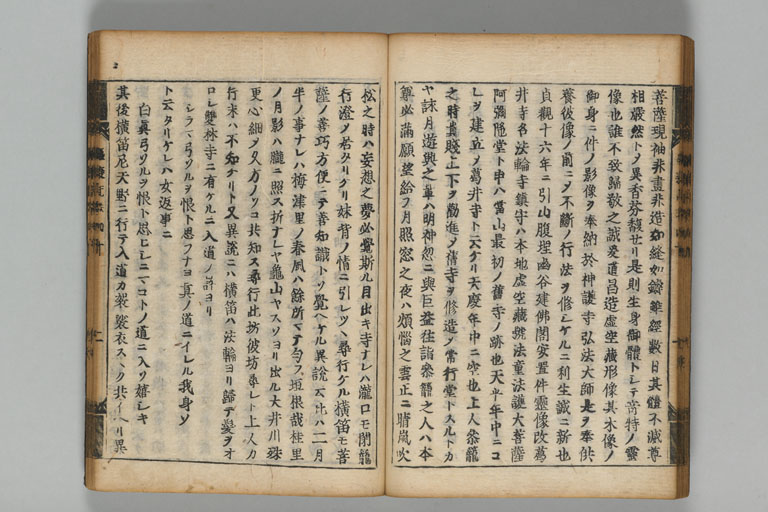 菩薩現袖非畫非造如縫如鑄雖經數日其體不滅尊
相嚴然トメ異香芬馥せリ是則生身御體トレテ奇特ノ靈
像也誰不致歸敬之誠爰道昌造虛空藏形像其木像ノ
御身ニ件ノ影像ヲ奉納於神護寺弘法大師是ヲ奉供
養彼像ノ前ニメ不斷ノ行法ヲ修シケルニ利生誠ニ新也
貞觀十六年ニ引山腹埋幽谷建佛閣安置件靈像改葛
井寺号法輪寺鎮守ハ本地虛空藏號法童法護大菩薩
阿彌陁堂ト申ハ當山最初ノ舊寺ノ跡也天平年中ニコ
レヲ建立メ葛井寺ト云ケリ天慶年中ニ空也上人叅籠
之時貴賤上下ヲ勸進メ舊寺ヲ修造メ常行堂トスルトカ
ヤ詠月遊興之輩ハ明神忽ニ與巨益住詣叅籠之人ハ本
尊必滿願望給フ月照窓之夜ハ煩惱之雲正ニ晴嵐吹
松之時ハ妄想之夢必覺斯ル目出キ寺ナレハ瀧口モ閉籠
行澄メ居タリケリ妹背ノ情ニ引レツヽ尋行ケル橫笛モ菩
薩ノ善巧方便ニテ善知識トソ覺ヘケル異說云比ハ二月
半ノ事ナレハ梅津里ノ春風ハ餘所マテ匂フ垣根哉桂里
ノ月影ハ朧ニ照ス折ナレヤ龜山ヤスソヨリ出ル大井川殊
更心細ク夕方ノソコ共知ス尋行此坊彼坊尋レト上人カ
行末ハ不知ケリト又異說ニハ橫笛ハ法輪ヨリ歸テ髮ヲオ
ロレ雙林寺ニ有ケルニ入道ノ許ヨリ
シラマ弓ソルヲ恨ト思フナヨ真ノ道ニイレル我身ソ
ト云タリケレハ女返事ニ
白眞弓ソルヲ恨ト思シレニマコトノ道ニ入ソ嬉シキ
其後橫笛尼天野ニ行テ入道カ袈裟衣スヽク共イヘリ異